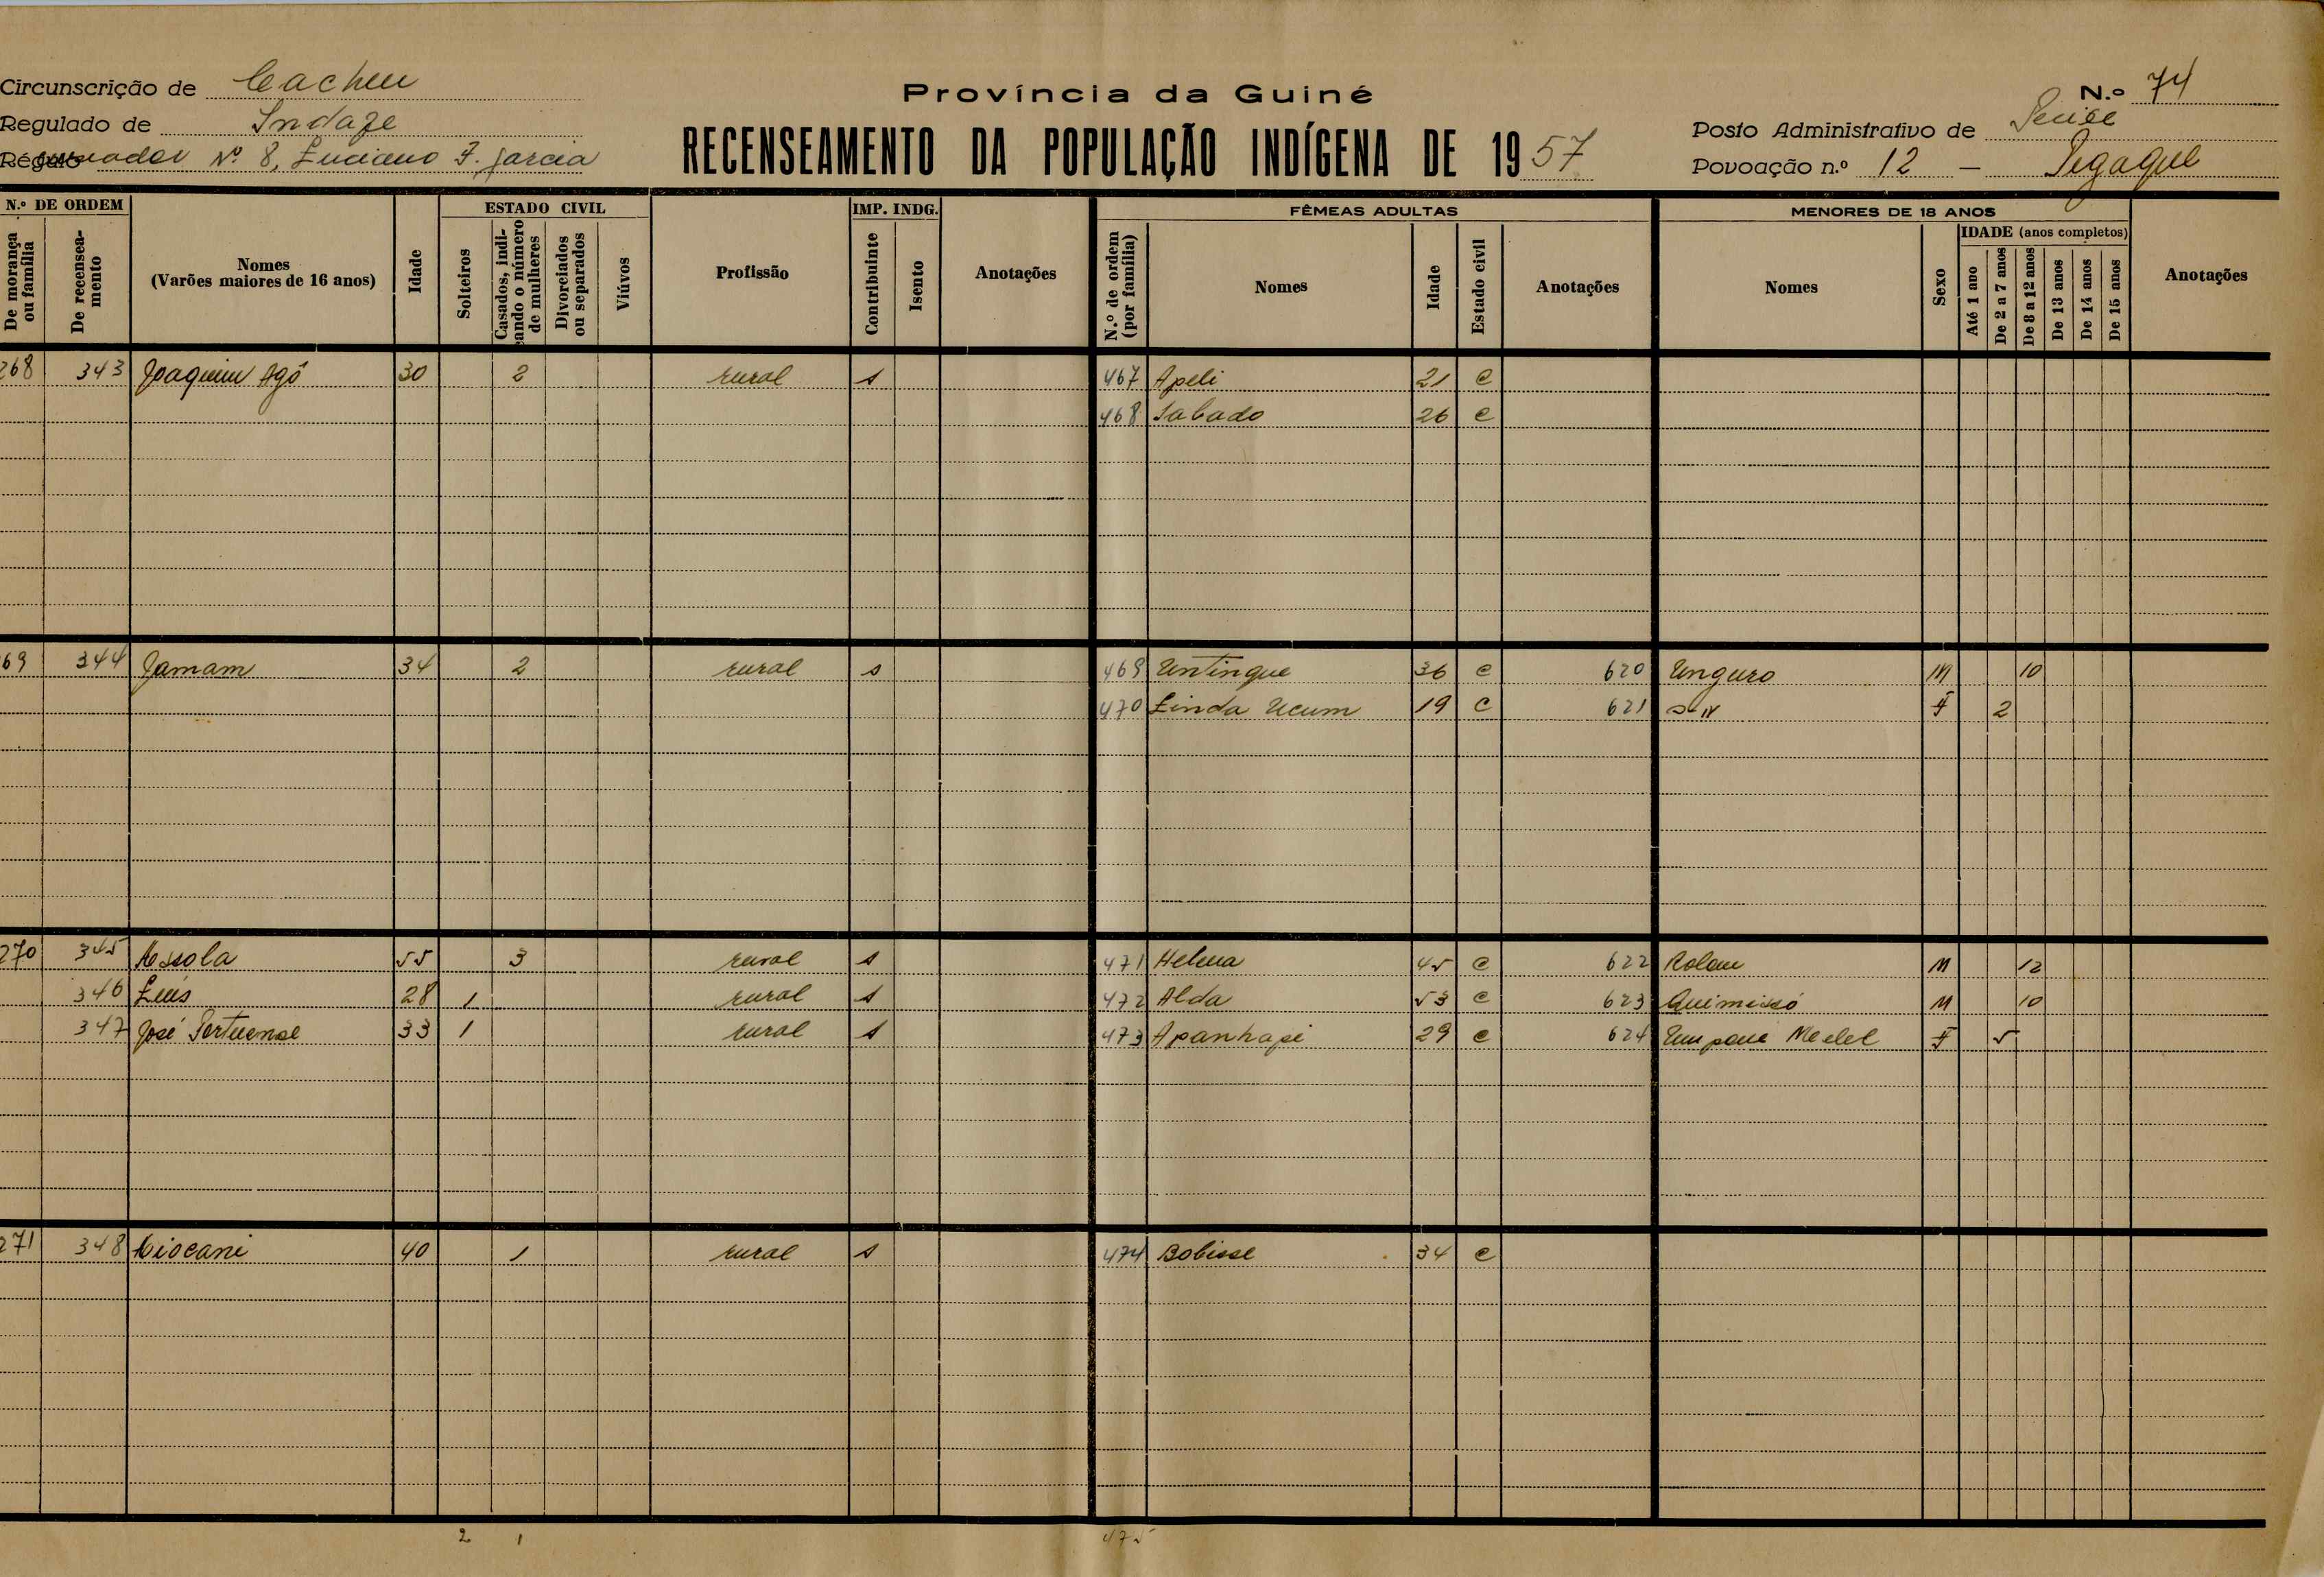 Circunscrição de Cacheu
Regulado de Indafe
Régulo N.º 8, Luciano F. Garcia
Província da Guiné
RECENSEAMENTO DA POPULAÇÃO INDÍGENA DE 1957
N.º 74
Posto Administrativo de
Povoação n.º 12 – Pegaque
N.º DE ORDEM
De morança ou família
De recensea-mento
Nomes (Varões maiores de 16 anos)
Idade
ESTADO CIVIL
Solteiros
Casados, indi-cando o número de mulheres
Divorciados ou separados
Viúvos
Profissão
IMP. INDG.
Contribuinte
Isento
Anotações
FÊMEAS ADULTAS
N.º de ordem (por família)
Nomes
Idade
Estado civil
Anotações
MENORES DE 18 ANOS
Nomes
Sexo
IDADE (anos completos)
Até 1 ano
De 2 a 7 anos
De 8 a 12 anos
De 13 anos
De 14 anos
De 15 anos
Anotações
268 343 Joaquim Agô 30 2 rural s 467 Apeli 21 C
468 Sabado 26 C
69 344 Jamam 34 2 rural s 469 Untingue 36 C 620 Unguro M 10
470 Linda Ucum 19 C 621 F 2
270 345 Assola 55 3 rural s 471 Helena 45 C 622 Rolam M 12
346 Luís 28 1 rural s 472 Alda 53 C 623 Quimissó M 10
347 José 33 1 rural s 473 Apanhapi 29 C 624 F 5
271 348 Ciocani 40 1 rural s 474 Bobisse 34 C
2 1 475